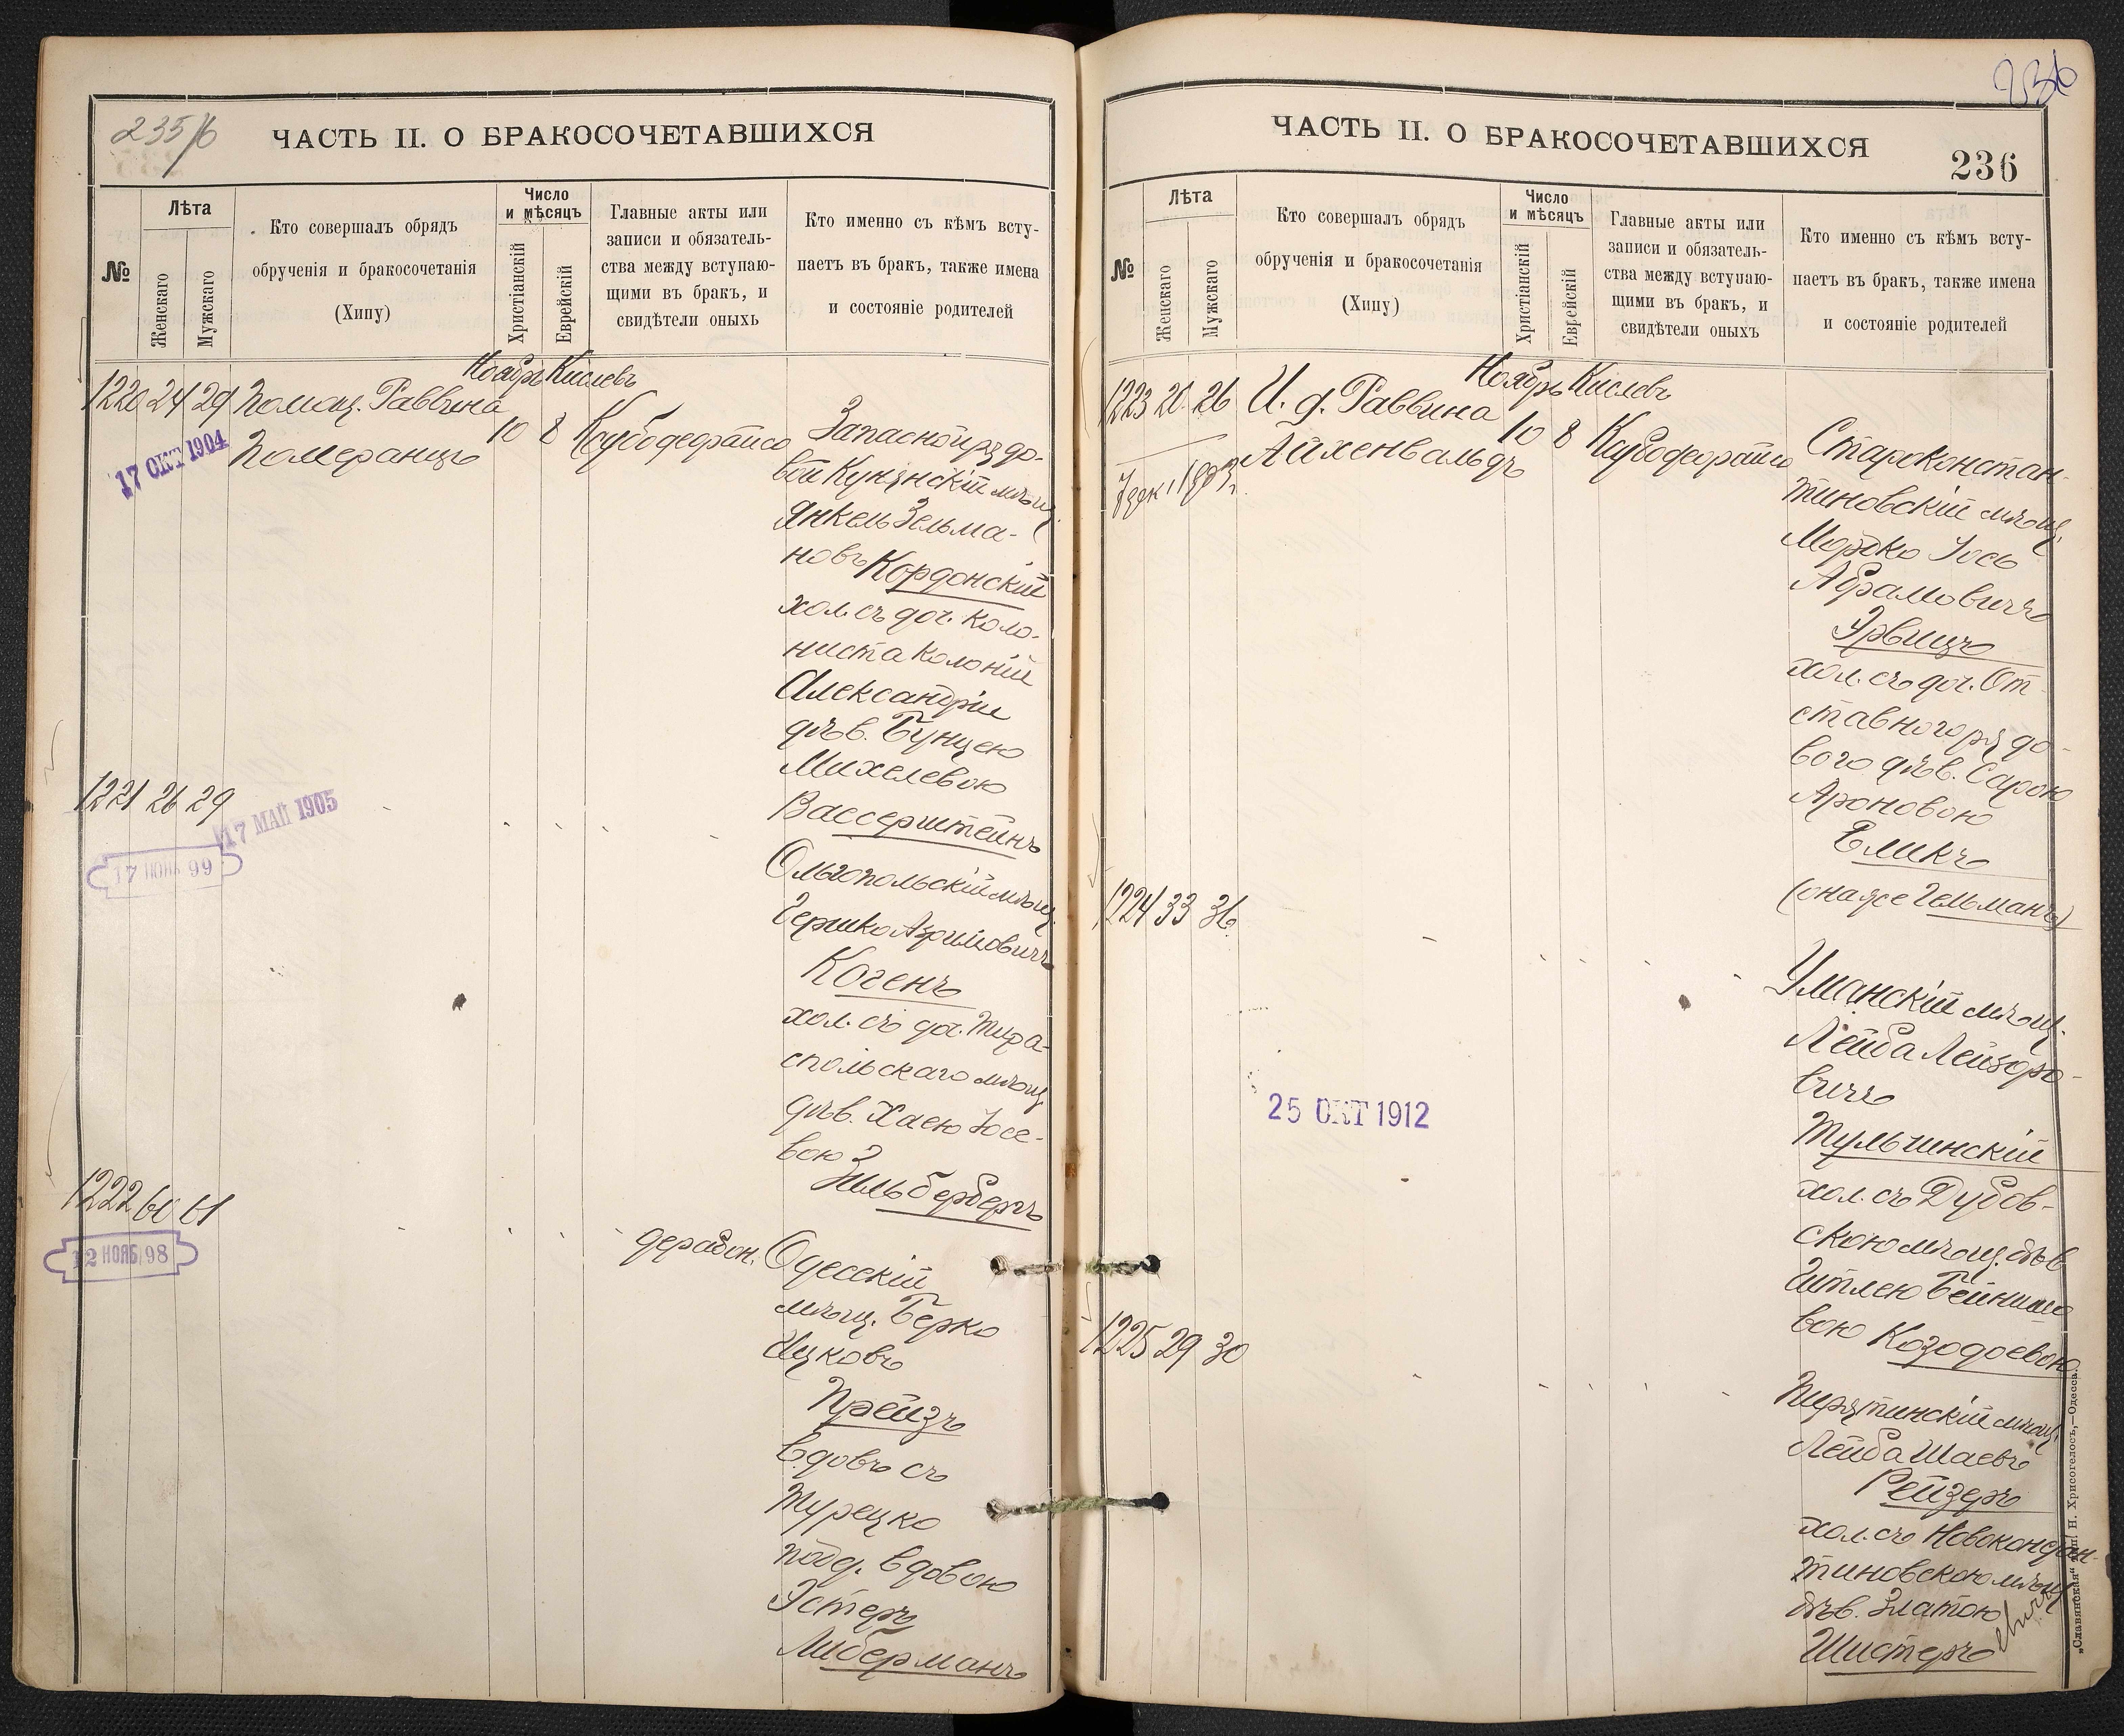 235/6
ЧАСТЬ II. О БРАКОСОЧЕТАВШИХСЯ
№
Лѣта
Женскаго
Мужскаго
Кто совершалъ обрядъ
обрученія и бракосочетанія
(Хипу)
Число
и мѣсяцъ
Христіанскій
Еврейскій
Главные акты или
записи и обязатель-
ства между вступаю-
щими въ бракъ, и
свидѣтели оныхъ
Кто именно съ кѣмъ всту-
паетъ въ бракъ, также имена
и состояніе родителей
Ноябрь Кислевъ
1220 24 29 Помощ. Раввина
Померанцъ
10 8
17 ОКТ 1904
Запасной рядо-
вой мѣщ.
Янкель Зельма-
новъ Кордонскій
хол. съ доч. коло-
ниста колоніи
Александріи
дѣв. Бунцею
Михелевою
Вассерштейнъ
1221 26 29
17 МАЙ 1905
17 ИЮНЬ 99
Ольгопольскій мѣщ.
Гершко
Когенъ
хол. съ доч. Тира-
спольскаго мѣщ.
дѣв. Хаею Іосе-
вою
Зильбербергъ
1222 60 61
12 НОЯБ 98
Одесскій
мѣщ. Берко
Ицковъ
Прейзъ
вдовъ съ
Турецко
подд. вдовою
Эстеръ
Либерманъ
236
ЧАСТЬ II. О БРАКОСОЧЕТАВШИХСЯ
236
№
Лѣта
Женскаго
Мужскаго
Кто совершалъ обрядъ
обрученія и бракосочетанія
(Хипу)
Число
и мѣсяцъ
Христіанскій
Еврейскій
Главные акты или
записи и обязатель-
ства между вступаю-
щими въ бракъ, и
свидѣтели оныхъ
Кто именно съ кѣмъ всту-
паетъ въ бракъ, также имена
и состояніе родителей
Ноябрь Кислевъ
1223 20 26 И. д. Раввина
Айхенвальдъ
10 8
Староконстан-
тиновскій мѣщ.
Мордко Іось
Абрамовичъ
Урвицъ
хол. съ доч. От-
ставного рядо-
вого дѣв. Сарою
Ароновою
Еликъ
(она же Гельманъ)
1224 33 36
Уманскій мѣщ.
Лейба Лейзоро-
вичъ
Тульчинскій
хол. съ Дубов-
скою мѣщ. дѣв.
Гитлею
вою Козодоевою
25 ОКТ 1912
1225 29 30
Пирятинскій мѣщ.
Лейба Шаевъ
Рейзеръ
хол. съ Новоконстан-
тиновскою мѣщ.
дѣв. Златою
Шистеръ
„Славянская“ тип. Н. Хрисогелосъ,—Одесса.